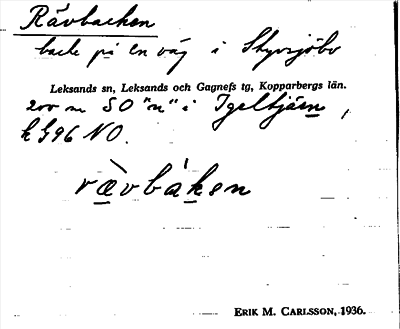 Rävbacken
backe på en väg i Styvsjöbo
Leksands sn, Leksands och Gagnefs tg, Kopparbergs län.
200 m SO "n" i Igeltjärn,
k 596 NO.
rævbaken
ERIK M. CARLSSON, 1936.